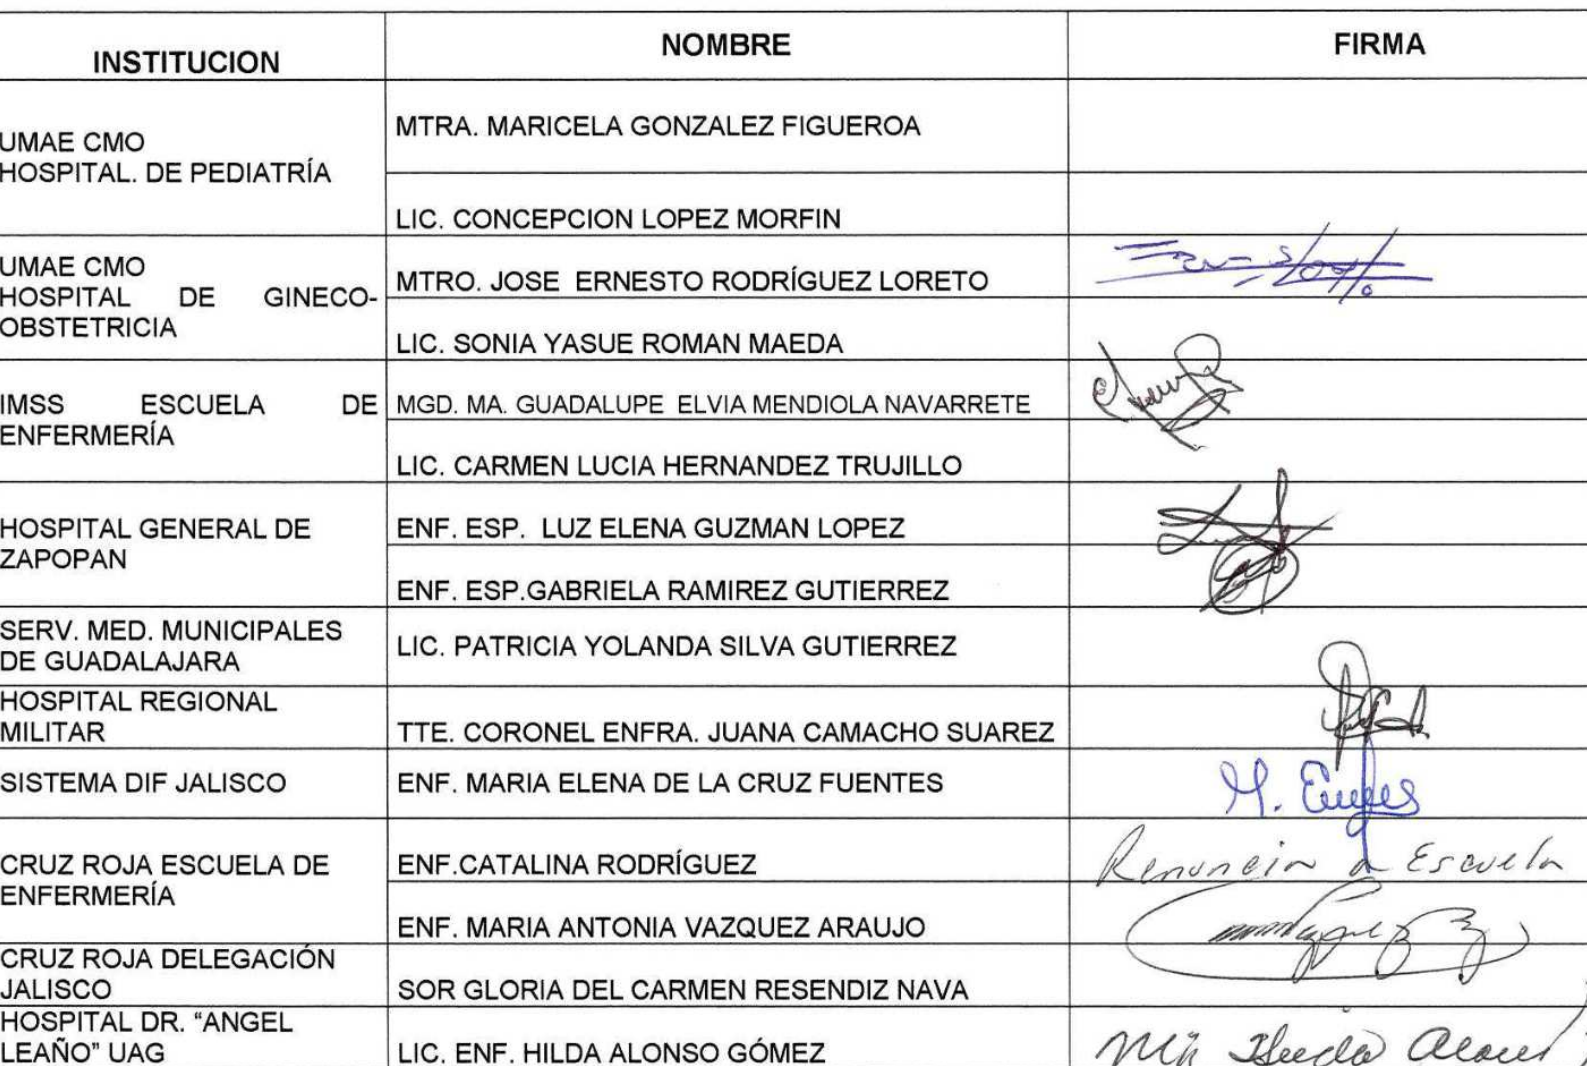 INSTITUCION NOMBRE FIRMA
UMAE CMO
HOSPITAL. DE PEDIATRÍA
MTRA. MARICELA GONZALEZ FIGUEROA
LIC. CONCEPCION LOPEZ MORFIN
UMAE CMO
HOSPITAL DE GINECO-
OBSTETRICIA
MTRO. JOSE ERNESTO RODRÍGUEZ LORETO
LIC. SONIA YASUE ROMAN MAEDA
IMSS ESCUELA DE
ENFERMERÍA
MGD. MA. GUADALUPE ELVIA MENDIOLA NAVARRETE
LIC. CARMEN LUCIA HERNANDEZ TRUJILLO
HOSPITAL GENERAL DE
ZAPOPAN
ENF. ESP. LUZ ELENA GUZMAN LOPEZ
ENF. ESP.GABRIELA RAMIREZ GUTIERREZ
SERV. MED. MUNICIPALES
DE GUADALAJARA
LIC. PATRICIA YOLANDA SILVA GUTIERREZ
HOSPITAL REGIONAL
MILITAR
TTE. CORONEL ENFRA. JUANA CAMACHO SUAREZ
SISTEMA DIF JALISCO
ENF. MARIA ELENA DE LA CRUZ FUENTES
CRUZ ROJA ESCUELA DE
ENFERMERÍA
ENF.CATALINA RODRÍGUEZ
Renuncia a Escuela
ENF. MARIA ANTONIA VAZQUEZ ARAUJO
CRUZ ROJA DELEGACIÓN
JALISCO
SOR GLORIA DEL CARMEN RESENDIZ NAVA
HOSPITAL DR. “ANGEL
LEAÑO” UAG
LIC. ENF. HILDA ALONSO GÓMEZ